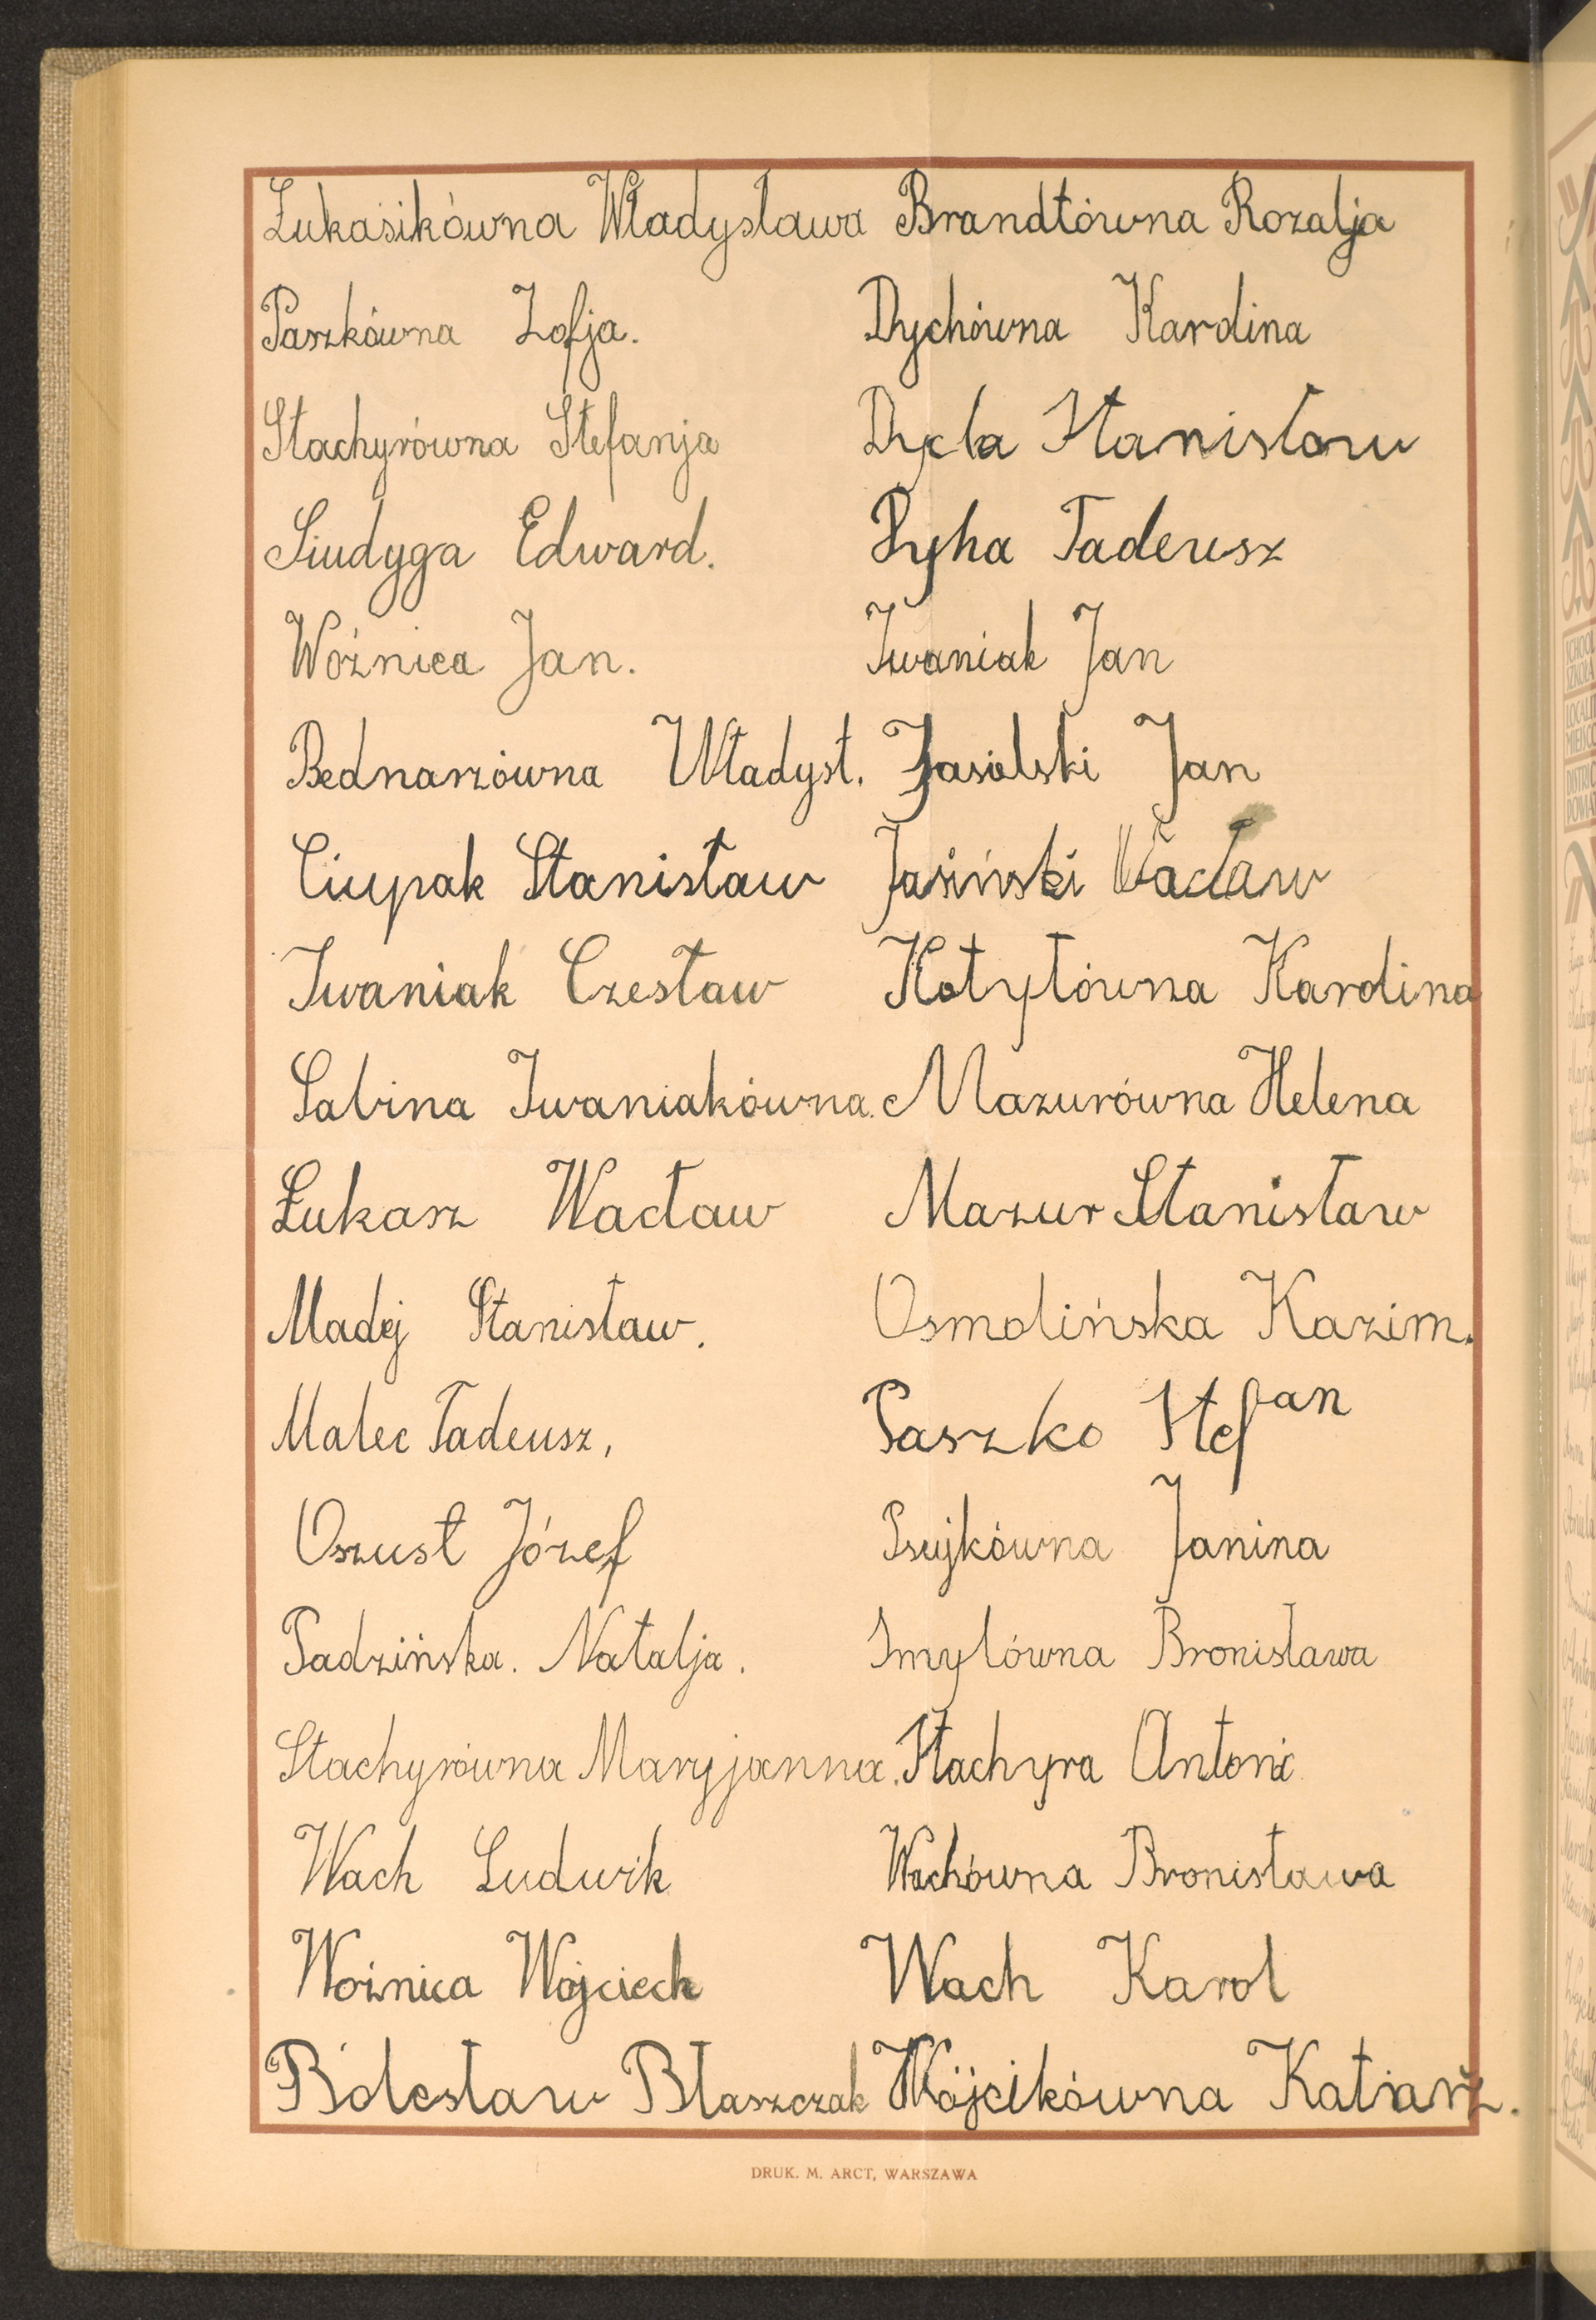 Łukasikówna Władysława
Paszkówna Zofja.
Stachyrówna Stefanja
Siudyga Edward.
Woźnica Jan.
Bednarzówna Władysł.
Ciupak Stanisław
Iwaniak Czesław
Sabina Iwaniakówna.
Łukasz Wacław
Madej Stanisław.
Malec Tadeusz,
Oszust Józef
Padzińska. Natalja.
Stachyrówna Maryjanna.
Wach Ludwik
Woźnica Wojciech
Bolesław Błaszczak
Brandtówna Rozalja
Dychówna Karolina
Dycla Stanisław
Dyha Tadeusz
Iwaniak Jan
Jasielski Jan
Jasiński Wacław
Kotyłówna Karolina
Mazurówna Helena
Mazur Stanisław
Osmolińska Kazim.
Paszko Stefan
Psujkówna Janina
Smylówna Bronisława
Stachyra Antoni
Wachówna Bronisława
Wach Karol
Wójcikówna Katarz.
DRUK. M. ARCT, WARSZAWA